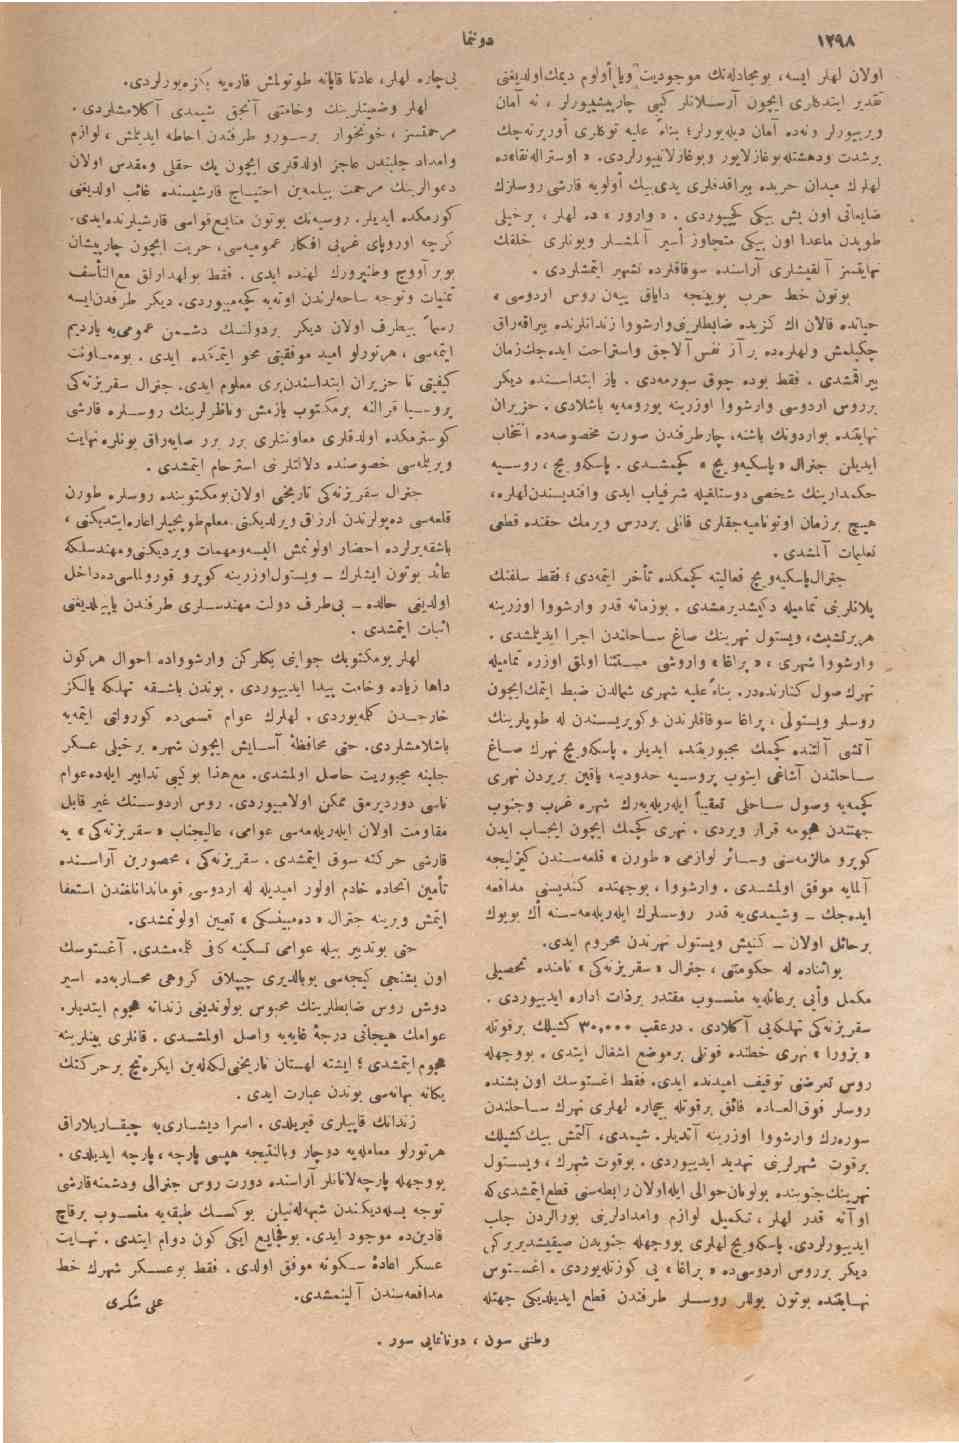 ١٢٩٨
دوننما
اولان لهلر ایسه، بومجادله‌نك موجودیت ویا اولوم دیمك‌اولدیغنی
تقدیر ایتدکلری ایچون آرسلانلر کبی چارپیشیورلر ، نه آمان
ویرییورلر ونه‌ده آمان دیله‌یورلر؛ بناءً علیه توکلری اورپرته‌جك
برشدت ودهشتله بوغازلایور وبوغازلانییورلردی. « اوستراله‌نقا»ده
لهلرك میدان حربده بیراقدقلری یدی‌بیك اولویه قارشی روسلرك
ضایعاتی اون بش بیکی کچییوردی . « وارور » ده لهلر ، برخیلی
طوپدن ماعدا اون بیکی متجاوز اسیر آلمشلر وبونلری خلقك
نهایتسز آلقیشلری آراسنده سوقاقلرده تشهیر ایتمشلردی .
بوتون خط حرب بویینجه دایاق یین روس اردوسی ،
حیاتده قالان اك کزیده ضابطلرینی‌وارشووا زندانلرنده بیراقه‌راق
چکیلمش ولهلرده بر آز نفس آلاجق واستراحت ایده‌جك زمان
بیراقمشدی . فقط بوده چوق سورمه‌دی . یاز ابتداسنده دیکر
برروس اردوسی وارشووا اوزرینه یورومه‌یه باشلادی . حزیران
نهایتنده بواردونك باشنه، چارطرفندن صورت مخصوصه‌ده انتخاب
ایدیلن جنرال « پاسکیه‌ویچ » کچمشدی . پاسکه‌ویچ ، روسیه
حکمدارینك شخصی دوستلغیله شرفیاب ایدی وافندیسندن‌لهلره،
هیچ برزمان اونوتامیه‌جقلری قانلی بردرس ویرمك حقنده قطعی
تعلیمات آلمشدی .
جنرال‌پاسکیه‌ویچ فعالیته کچمکده تأخر ایتمه‌دی ؛ فقط سلفنك
پلانلرنی تمامیله دکیشدیرمشدی . بوزمانه قدر وارشووا اوزرینه
هرتشبث، ویستول نهرینك صاغ ساحلندن اجرا ایدیلمشدی .
وارشووا شهری ، « پراغا » واروشی مستثنا اولمق اوزره تمامیله
نهرك صول کنارنده‌در. بناءً علیه شهری شمالدن ضبط ایتمك‌ایچون
روسلر ویستولی ، پراغا سوقاقلرندن وکوپریسندن له طوپلرینك
آتشی آلتنده کچمك مجبوریتنده ایدیلر . پاسکه‌ویچ نهرك صاغ
ساحلندن آشاغی اینوب پروسیه حدودینه یاقین بریردن نهری
کچمه‌یه وصول ساحلی تعقیباً ایلریله‌یه‌رك شهره غرب وجنوب
جهتندن هجومه قرار ویردی . نهری کچمك ایچون ایجاب ایدن
کوپرو مالزمه‌سنی وسائر لوازمی « طورن » قلعه‌سندن کیزلیجه
آلمایه موفق اولمشدی . وارشووا ، بوجهتده کندیسنی مدافعه
ایده‌جك ــ وشیمدی‌یه قدر روسلرك ایلریله‌مه‌سنه اك بویوك
برحائل اولان ــ کنیش ویستول نهرندن محروم ایدی.
بواثناده له حکومتنی ، جنرال « سقریزنه‌کی » نامنده تحصیلی
مکمل وایی برعائله‌یه منسوب مقتدر برذات اداره ایدییوردی .
سقریزنه‌کی تهلکه‌یی آکلادی . درعقب ٣٠,٠٠٠ کشیلك برقوتله
« بزورا » نهری خطنده قوتلی برموضع اشغال ایتدی . بووجهله
روس تعرضنی توقیف امیدنده ایدی. فقط اغستوسك اون بشنده
روسلر فوق‌العاده فائق برقوتله بیچاره لهلری نهرك ساحلندن
سوره‌رك وارشووا اوزرینه آتدیلر. شیمدی، آلتمش بیك کشیلك
برقوت شهرلرینی تهدید ایدییوردی . بوقوت شهرك ، ویستول
نهرینك‌جنوبنده بولونان‌حوالی ایله‌اولان رابطه‌سنی قطع‌ایتمشدی‌که
اوآنه قدر لهلر ، تکمیل لوازم وامدادلرنی بورالردن جلب
ایدییورلردی. پاسکه‌ویچ لهلری بووجهله جنوبدن صیقیشدیررکن
دیکر برروس اردوسی‌ده « پراغا » یی کوزتله‌یوردی . اغستوس
نهایتنده بوتون یوللر روسلر طرفندن قطع ایدیلدیکی جهتله
بی‌چاره لهلر، عادتا قاپانه طوتولمش فاره‌یه بکزه‌یورلردی.
لهلر وضعیتلرینك وخامتنی آنجق شیمدی آکلامشلردی .
مرحمتسز ، خونخوار برسورو طرفندن احاطه ایدیلمش ، لوازم
وامداد جلبندن عاجز اولدقلری ایچون پك حقلی ومقدس اولان
دعوالرینك مرحمت بیلمه‌ین احتیاج قارشیسنده غائب اولدیغنی
کورمکده ایدیلر. روسیه‌نك بوتون منابع‌قواسی قارشیلرنده‌ایدی.
کرچه اوروپای غربی افکار عمومیه‌سی، حریت ایچون چارپیشان
بوبر آووچ وطنپرورك لهنده ایدی . فقط بولهدارلق مع‌التأسف
تمنیات وتوجه ساحه‌لرندن اوته‌یه کچه‌مییوردی. دیکر طرفدن‌ایسه
رسماً بیطرف اولان دیکر بردولتك دشمن عمومی‌یه یاردیم
ایتمه‌سی ، هرتورلو امید موفقیتی محو ایتمکده ایدی . بومعاونت
کیفیتی تا حزیران ابتداسندن‌بری معلوم ایدی. جنرال سقریزنه‌کی
پروسیا قرالنه برمکتوب یازمش وناظرلرینك روسلره قارشی
کوسترمکده اولدقلری معاونتلری برر برر صایه‌راق بونلره نهایت
ویریلمه‌سی خصوصنده دلالتلرنی استرحام ایتمشدی .
جنرال سقریزنه‌کی تاریخی اولان‌بومکتوبنده روسلره طورن
قلعه‌سی ده‌پولرندن ارزاق ویرلدیکنی، معلم‌طوپجیلراعاره‌ایتدیکنی ،
باشقه‌یرلرده احضار اولونمش البسه‌ومهمات ویردیکنی‌ومهندسلکه
عائد بوتون ایشلرك ــ ویستول‌اوزرینه کوپرو قورولماسی‌ده‌داخل
اولدیغی حالده ــ بی‌طرف دولت مهندسلری طرفندن یاپیلدیغنی
اثبات ایتمشدی .
لهلر بومکتوبك جوابنی بکلرکن وارشوواده احوال هرکون
داها زیاده وخامت پیدا ایدییوردی . بوندن باشقه تهلکه یالکز
خارجدن کله‌یوردی . لهلرك عوام قسمی‌ده کورولتی ایتمه‌یه
باشلامشلردی. حتی محافظهٔ آسایش ایچون شهره برخیلی عسکر
جلبنه مجبوریت حاصل اولمشدی. مع‌هذا بوکبی تدابیر ایله‌ده‌عوام
ناسی دوردیرمق ممکن اولامییوردی. روس اردوسنك غیر قابل
مقاومت اولان ایلریله‌مه‌سی عوامی، عالیجناب « سقریزنه‌کی » یه
قارشی حرکته سوق ایتمشدی . سقریزنه‌کی ، محصورین آراسنده
تأمین اتحاده خادم اولور امیدیله له اردوسی قومانداندلغندن استعفا
ایتمش ویرینه جنرال « ده‌مبینسکی » تعیین اولونمشدی.
حتی بوتدبیر بیله عوامی تسکینه کافی کلمه‌مشدی. آغستوسك
اون بشنجی کیجه‌سی بوبالدیری چیپلاق کروهی محاربه‌ده اسیر
دوشن روس ضابطلرینك محبوس بولوندیغی زندانه هجوم ایتدیلر.
عوامك هیجانی درجهٔ غایه‌یه واصل اولمشدی. قانلری بینلرینه
هجوم ایتمشدی ؛ ایشته لهستان تاریخنی لکه‌له‌ین ایکره‌نچ برحرکتك
یکانه بهانه‌سی بوندن عبارت ایدی .
زندانك قاپیلری قیریلدی . اسرا دیشاری‌یه چیقاریلاراق
هرتورلو معامله‌یه دوچار وبالنتیجه هپسی پارچه ، پارچه ایدیلدی .
بووجهله پارچه‌لانانلر آراسنده دورت روس جنرالی ودشمنه‌قارشی
توجه بسله‌دیکندن شبهه‌له‌نیلن یوکسك طبقه‌یه منسوب برقاچ
قادین‌ده موجود ایدی. بوفجایع ایکی کون دوام ایتدی . نهایت
عسکر اعادهٔ سکونه موفق اولدی . فقط بوعسکر شهرك خط
مدافعه‌سندن آلینمشدی.
علی شکری
وطنی سون ، دونانمایی سور .